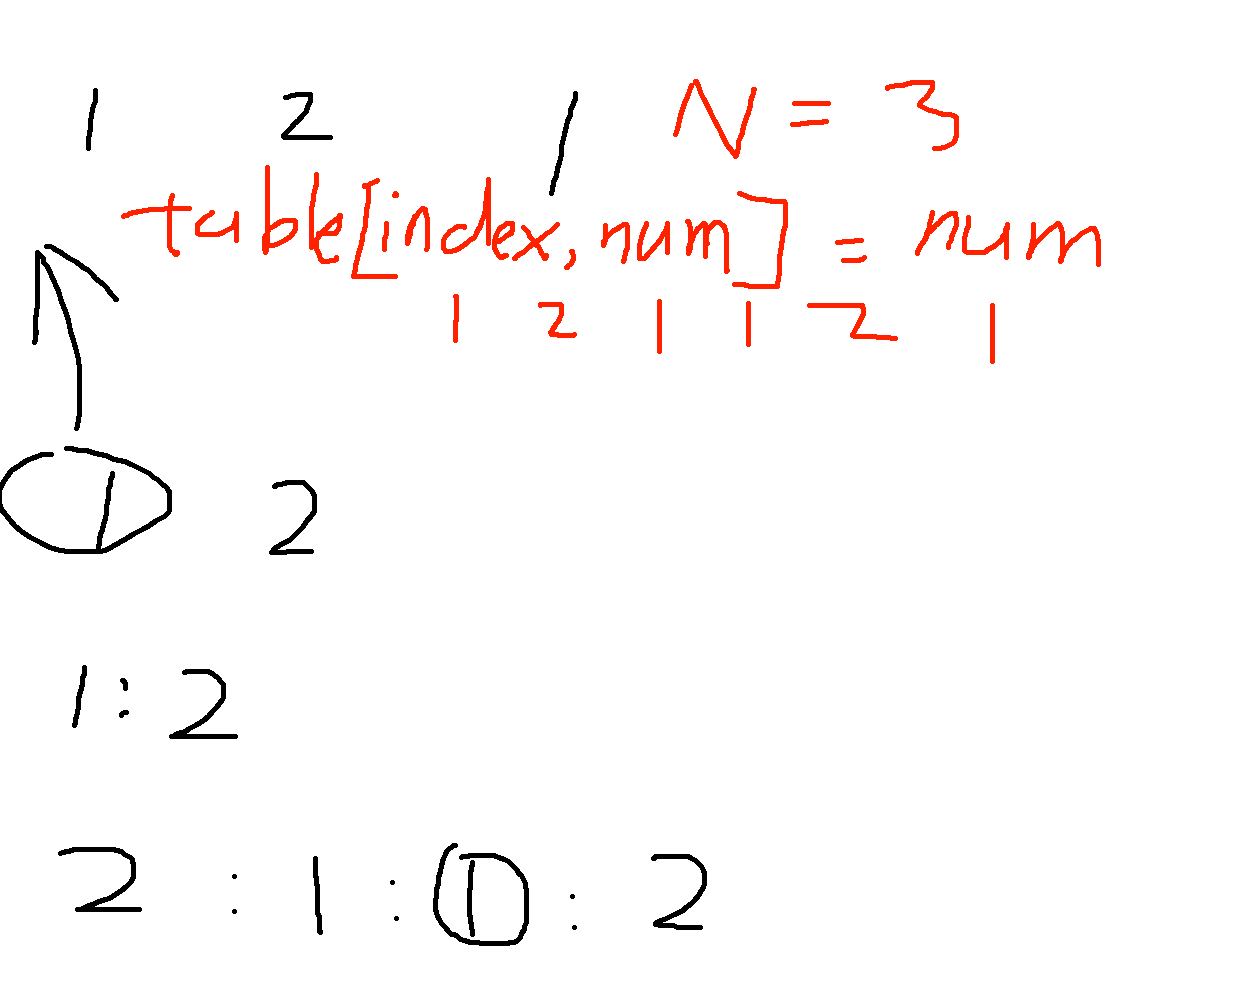 1 2 1 N = 3
table[index, num] = num
1 2 1 1 2 1
1 2
1 : 2
2 : 1 : 1 : 2